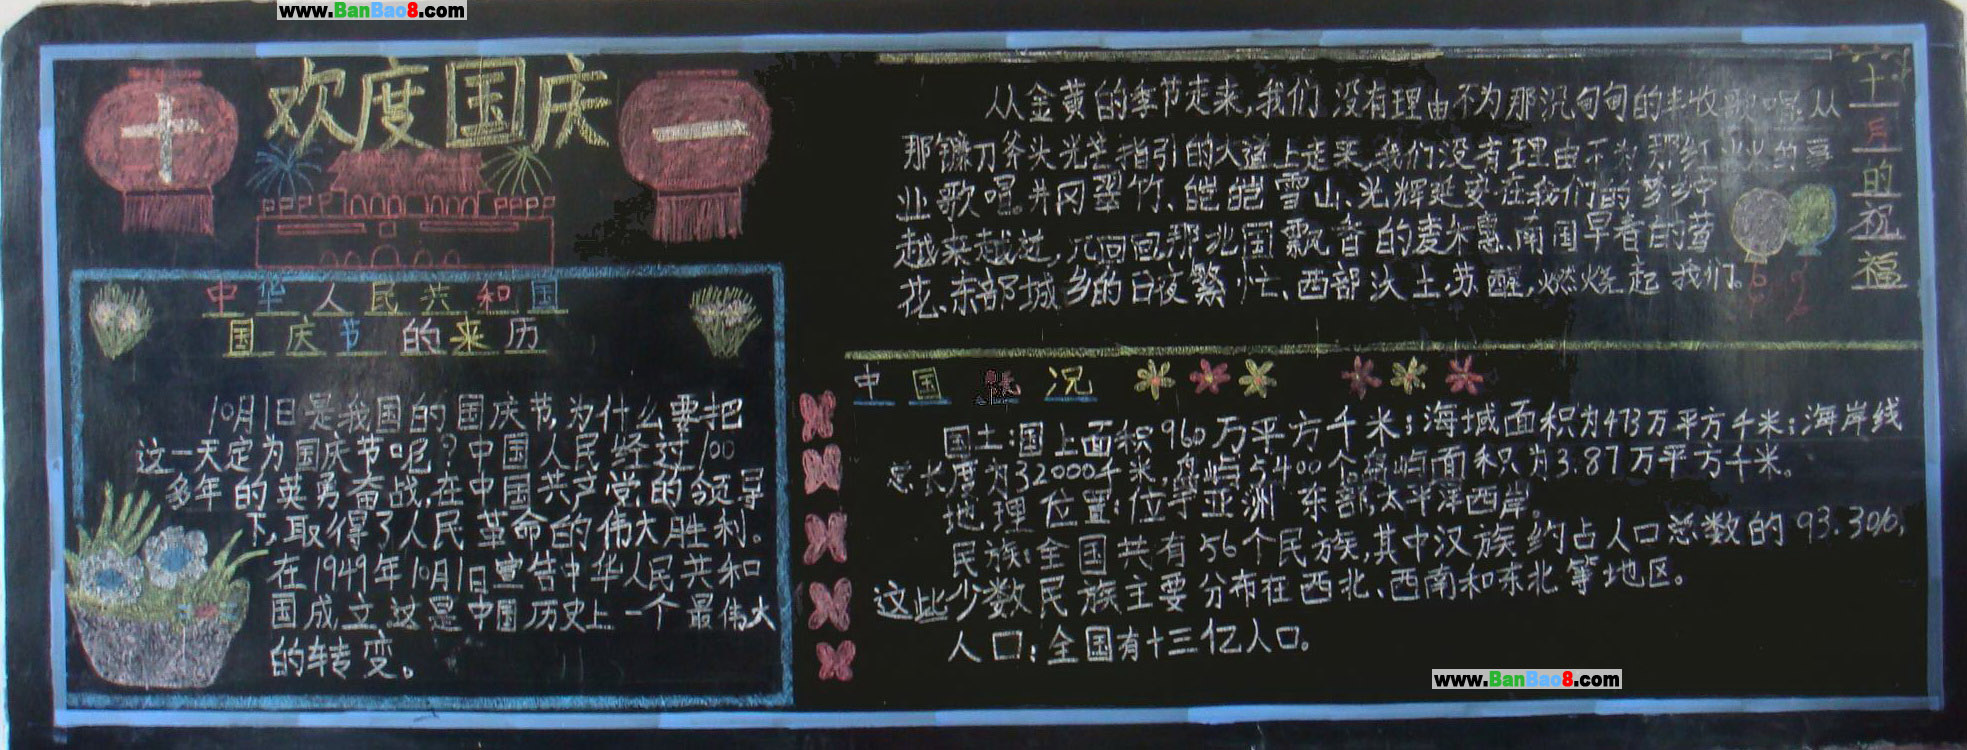 www.BanBao8.com
十
欢度国庆
一
中华人民共和国
国庆节的来历
10月1日是我国的国庆节,为什么要把
这一天定为国庆节呢?中国人民经过100
多年的英勇奋战,在中国共产党的领导
下,取得了人民革命的伟大胜利。
在1949年10月1日宣告中华人民共和
国成立,这是中国历史上一个最伟大
的转变。
十月的祝福
从金黄的季节走来,我们没有理由不为那沉甸甸的丰收歌唱.从
那镰刀斧头光芒指引的大道上走来,我们没有理由不为那红火火的事
业歌唱。井冈翠竹、皑皑雪山、光辉延安在我们的梦乡中
越来越近,几回回那北国飘香的麦
南国早春的萤
花、东部城乡的日夜繁忙、西部沃土苏醒,燃烧起我们。
中国概况
国土:国土面积960万平方千米;海域面积为473万平方千米;海岸线
总长度为32000千米,岛屿5400个,岛屿面积为3.87万平方千米。
地理位置:位于亚洲东部,太平洋西岸。
民族:全国共有56个民族,其中汉族约占人口总数的93.3%,
这些少数民族主要分布在西北、西南和东北等地区。
人口:全国有十三亿人口。
www.BanBao8.com